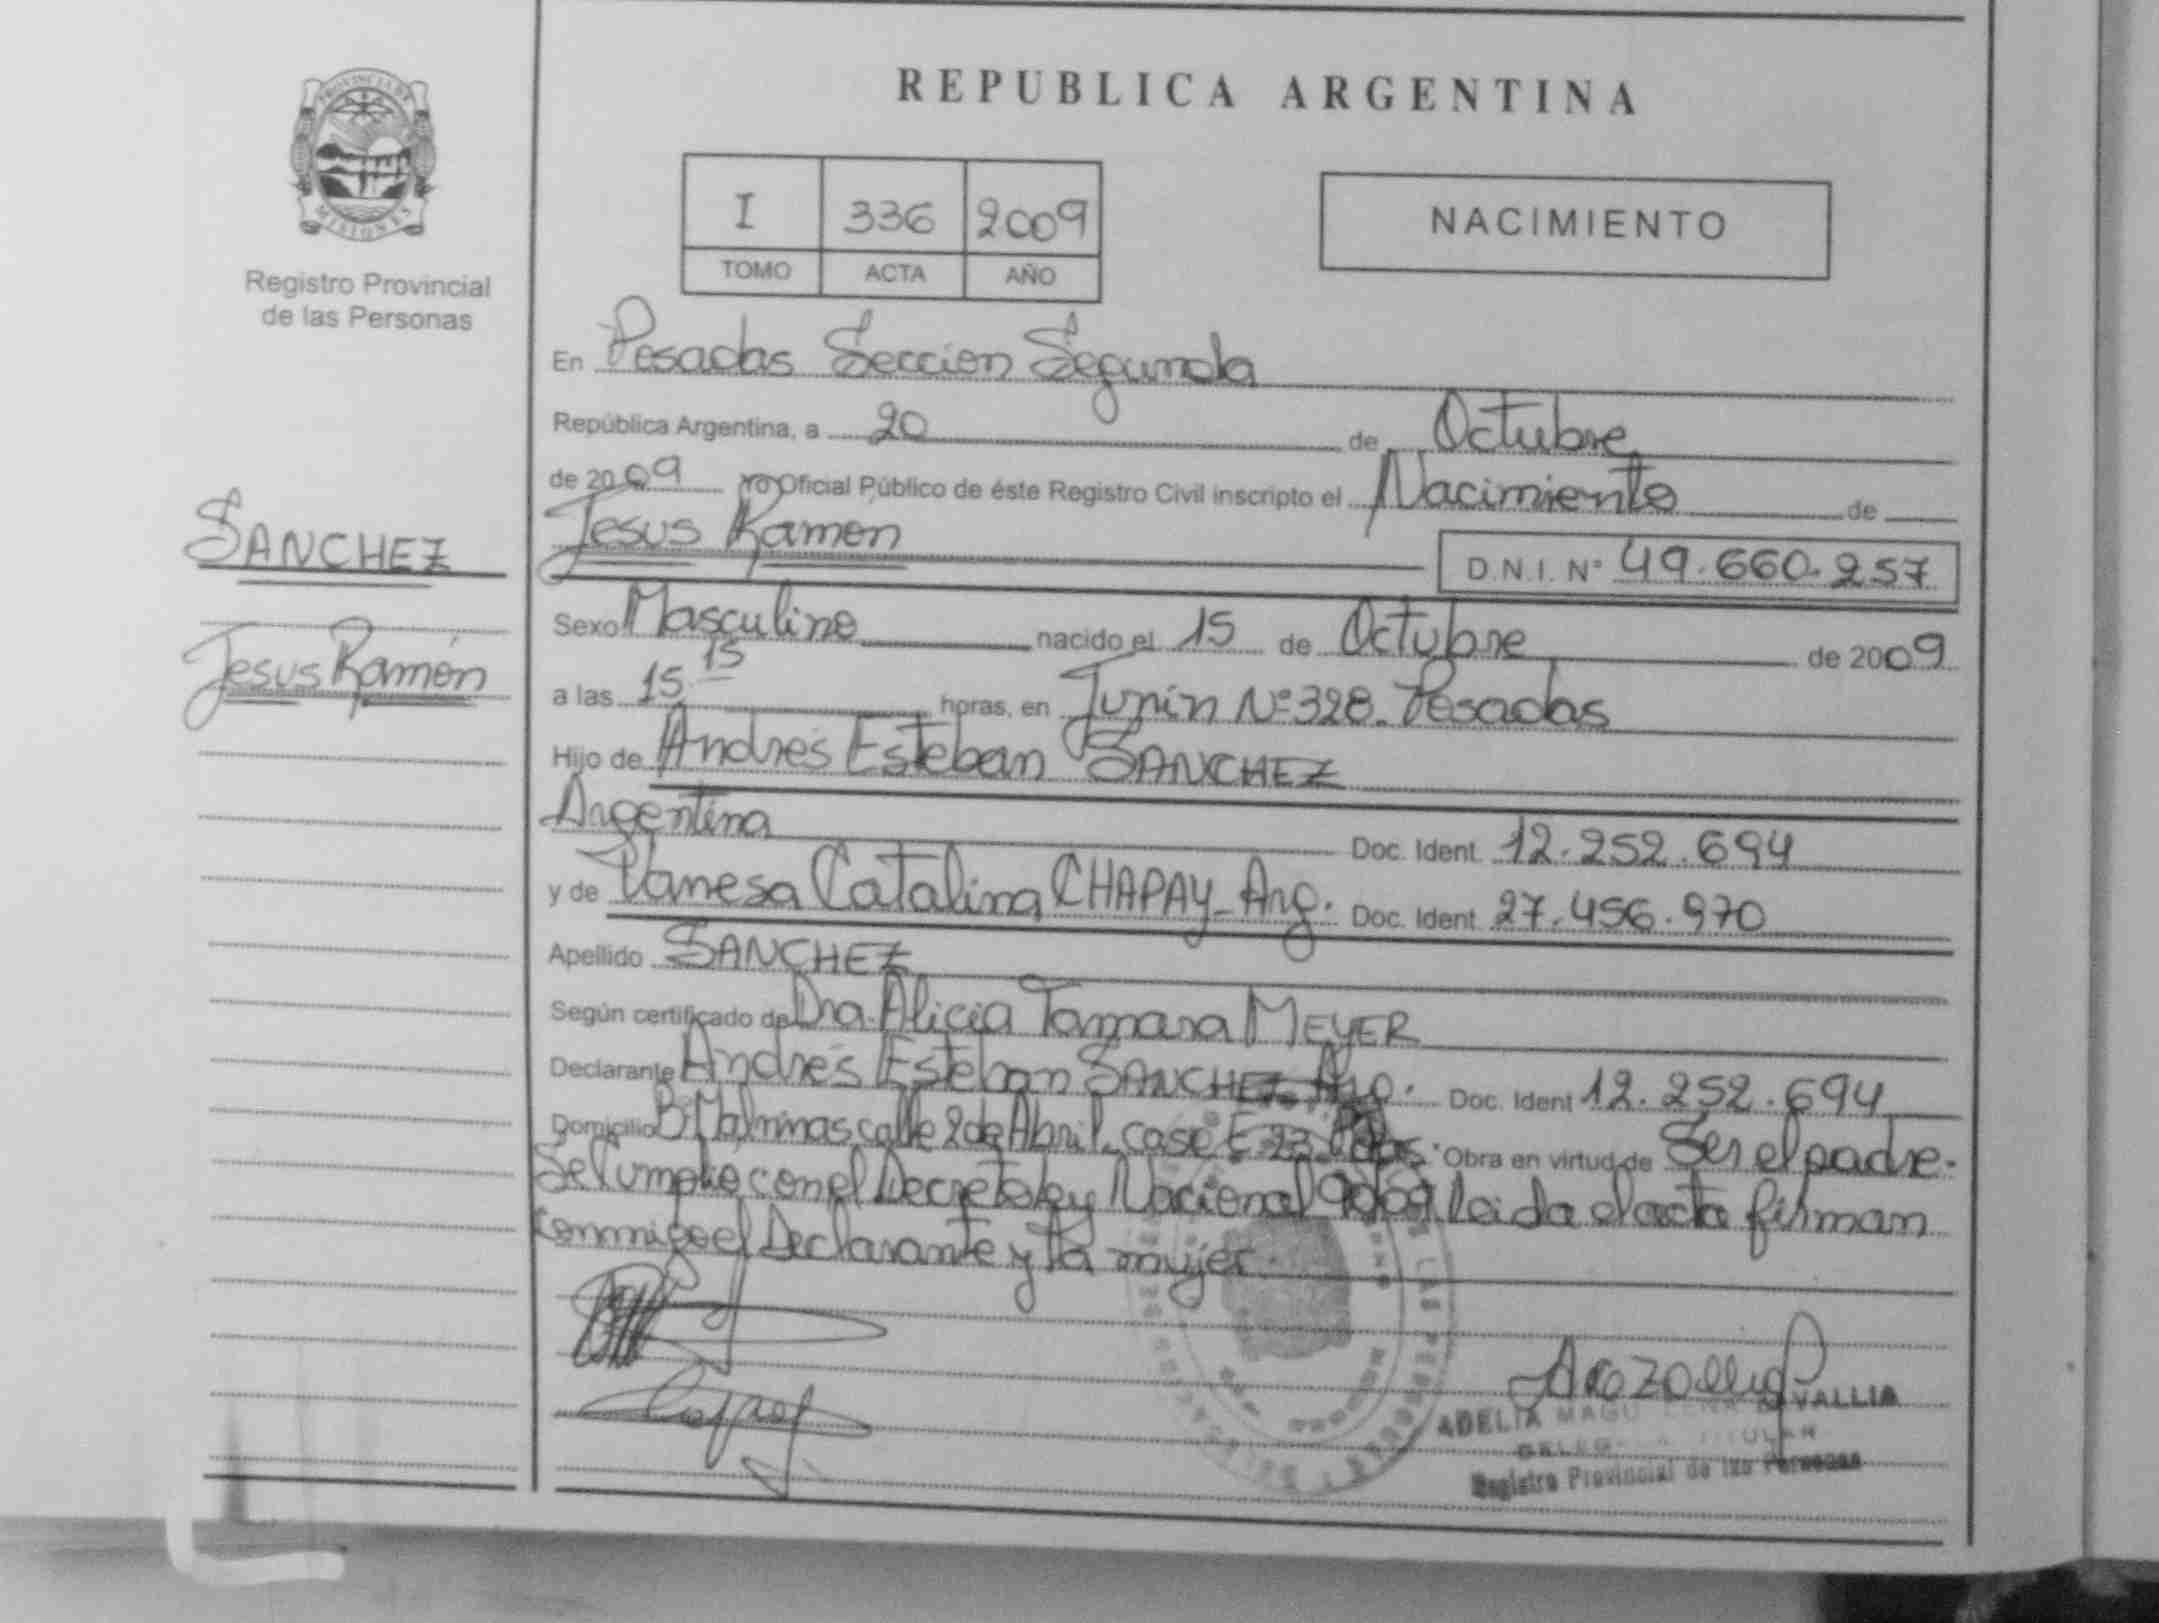 REPUBLICA ARGENTINA
PROVINCIA DE
MISIONES
Registro Provincial
de las Personas
I 336 2009
TOMO ACTA AÑO
NACIMIENTO
En Posadas Sección Segunda
República Argentina, a 20 de Octubre
de 2009 yo Oficial Público de éste Registro Civil inscripto el Nacimiento de
SANCHEZ
Jesus Ramon
D.N.I. Nº 49.660.257
Jesus Ramón
Sexo Masculino nacido el 15 de Octubre de 2009
a las 15,15 horas, en Junin Nº 328. Posadas
Hijo de Andrés Esteban SANCHEZ
Argentina Doc. Ident. 12.252.694
y de Vanesa Catalina CHAPAY - Arg. Doc. Ident. 27.456.970
Apellido SANCHEZ
Según certificado de Dra. Alicia Tamara MEYER
Declarante Andrés Esteban SANCHEZ Arg. Doc. Ident 12.252.694
Domicilio Bº Malvinas calle 2 de Abril. case E 23 Obra en virtud de Ser el padre.
Se Cumplio con el Decreto ley Nacional leida el acta firman
conmigo el Declarante y la mujer.
ADELIA VALLIA
Registro Provincial de las Personas